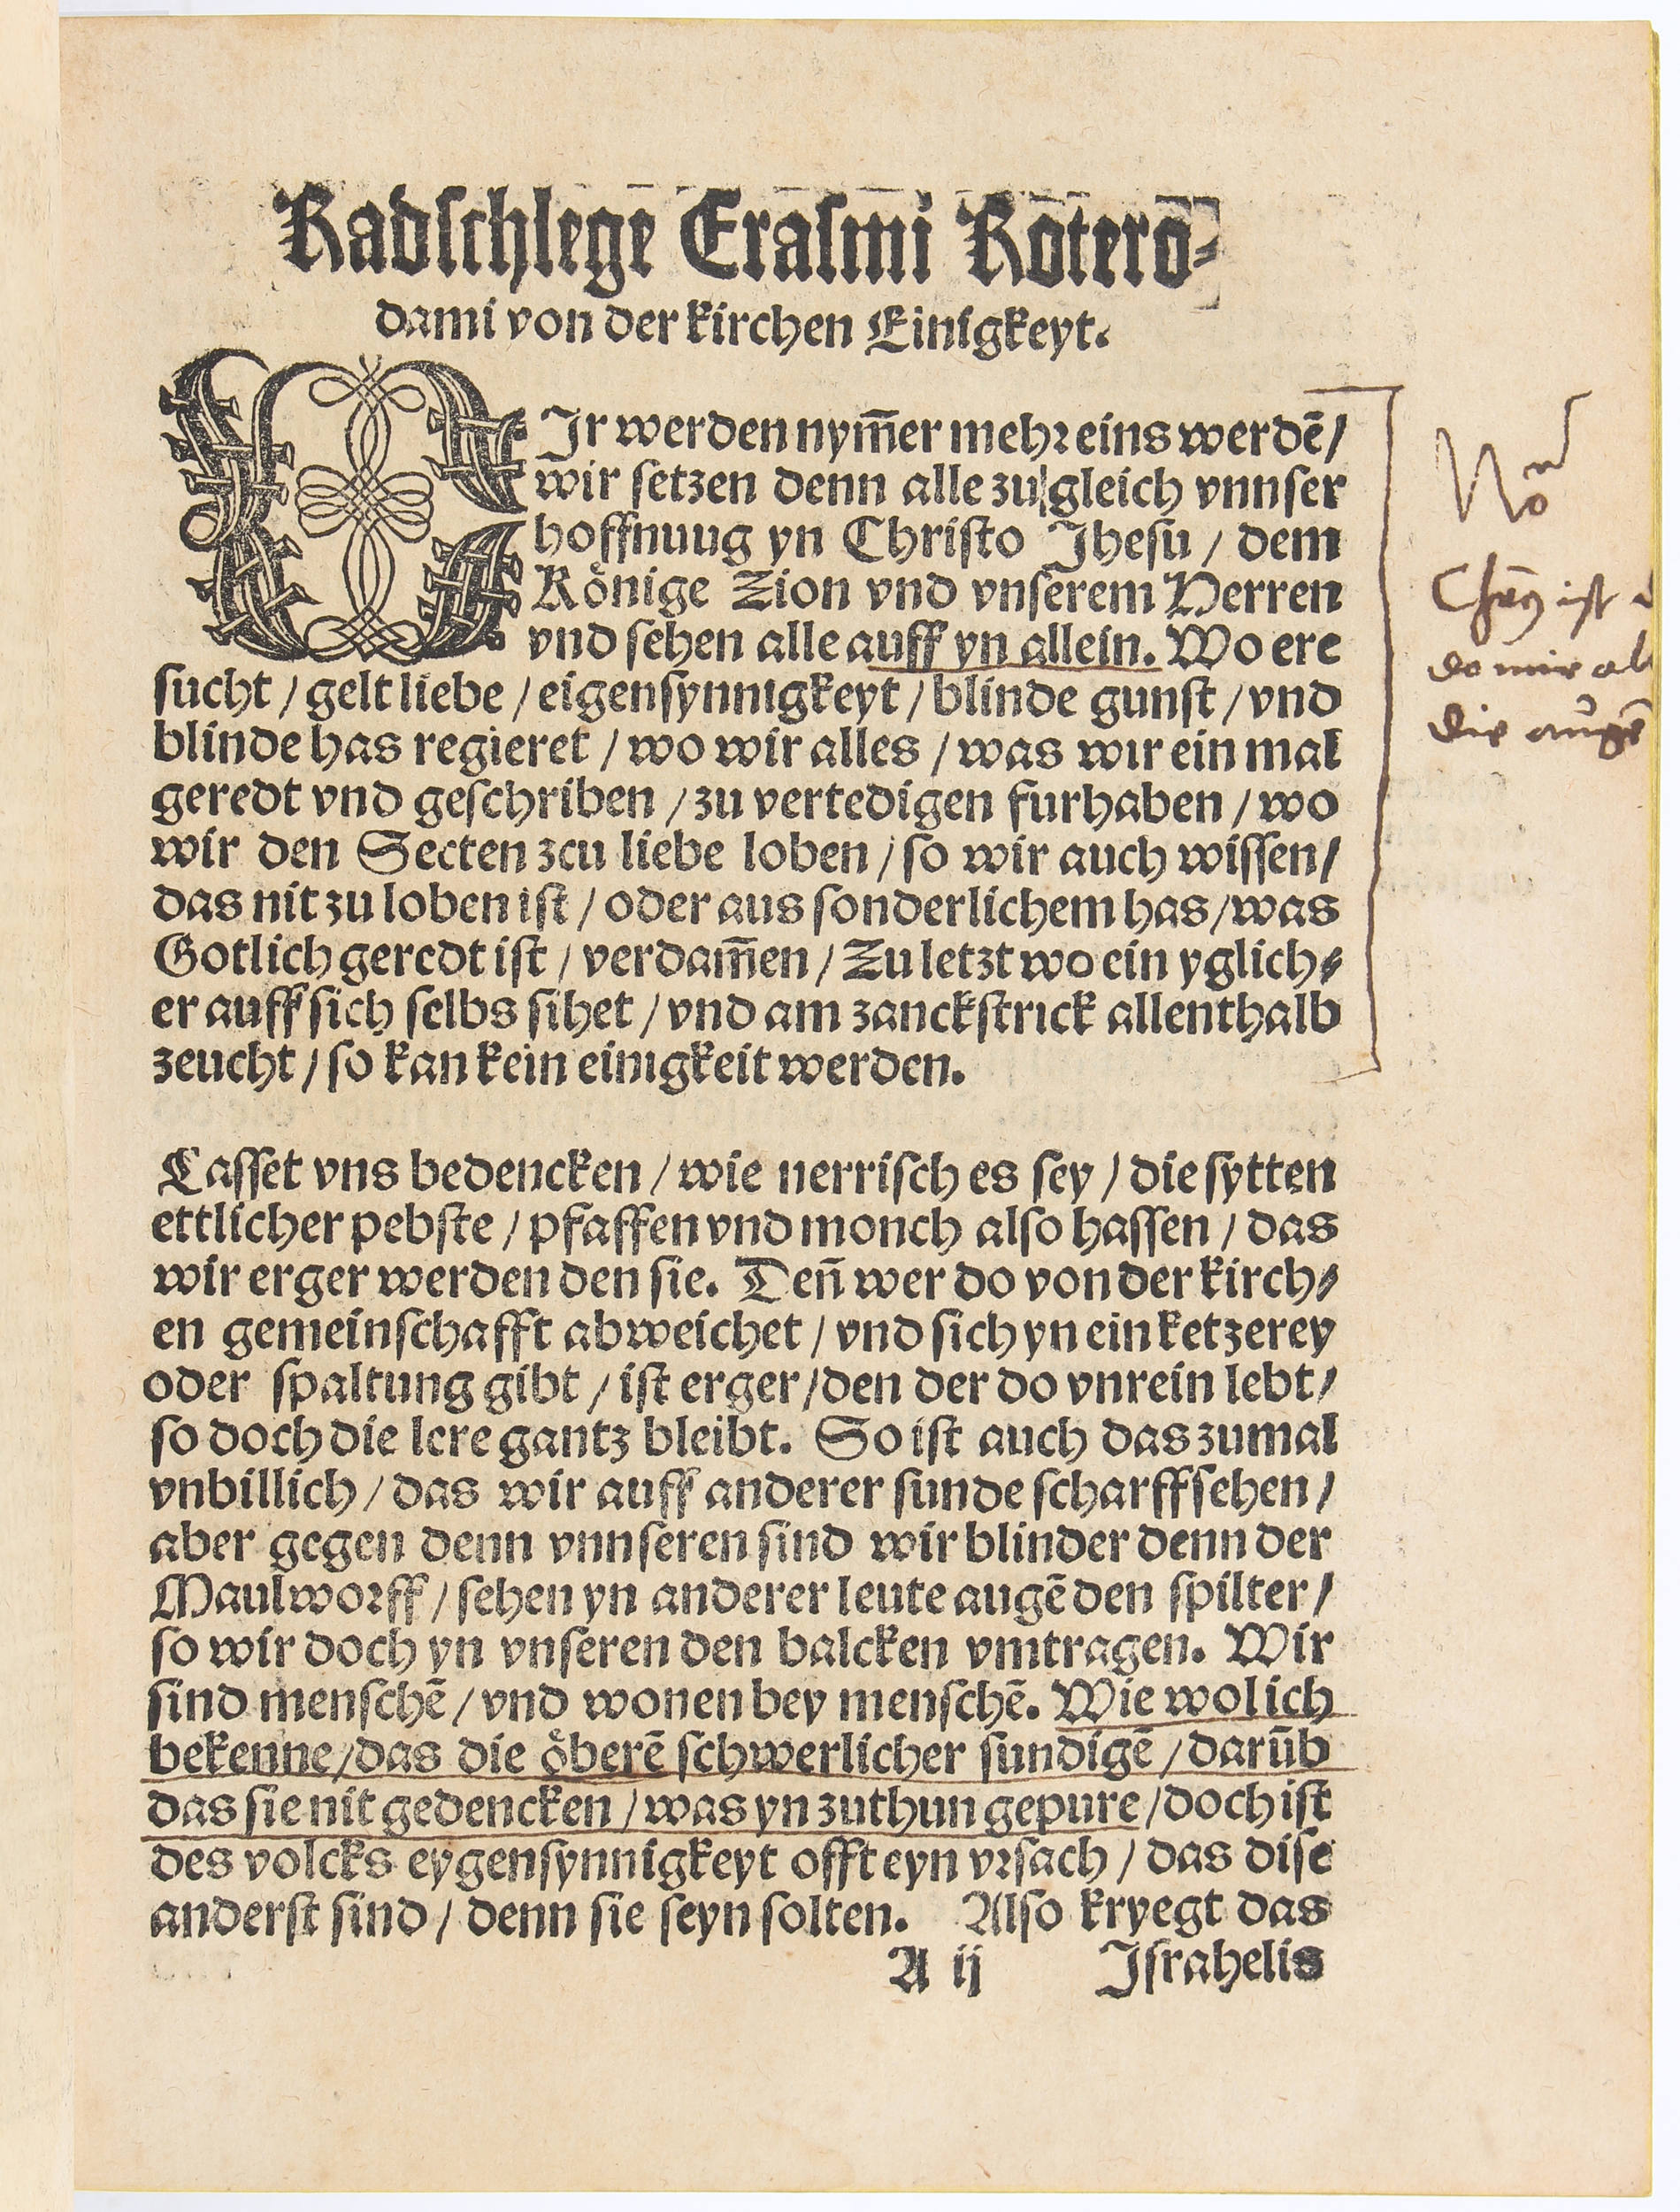 Radſchlege Eraſmi Rotero⸗
dami von der kirchen Einigkeyt.
WIr werden nym̄er mehꝛ eins werdē/
wir ſetzen denn alle zu gleich vnnſer
hoffnuug yn Chriſto Jheſu / dem
Koͤnige Zion vnd vnſerem Herren
vnd ſehen alle auff yn allein. Wo ere
ſucht / gelt liebe / eigenſynnigkeyt / blinde gunſt / vnd
blinde has regieret / wo wir alles / was wir ein mal
geredt vnd geſchriben / zu vertedigen furhaben / wo
wir den Secten zcu liebe loben / ſo wir auch wiſſen /
das nit zu loben iſt / oder aus ſonderlichem has / was
Gotlich geredt iſt / verdam̄en / Zu letzt wo ein yglich⸗
er auff ſich ſelbs ſihet / vnd am zanckſtrick allenthalb
zeucht / ſo kan kein einigkeit werden.
Laſſet vns bedencken / wie nerriſch es ſey / die ſytten
ettlicher pebſte / pfaffen vnd monch alſo haſſen / das
wir erger werden den ſie. Den̄ wer do von der kirch⸗
en gemeinſchafft abweichet / vnd ſich yn ein ketzerey
oder ſpaltung gibt / iſt erger / den der do vnrein lebt /
ſo doch die lere gantz bleibt. So iſt auch das zumal
vnbillich / das wir auff anderer ſunde ſcharff ſehen /
aber gegen denn vnnſeren ſind wir blinder denn der
Maulwoꝛff / ſehen yn anderer leute augē den ſpilter /
ſo wir doch yn vnſeren den balcken vmtragen. Wir
ſind menſchē / vnd wonen bey menſchē. Wie wol ich
bekenne / das die oͤberē ſchwerlicher ſundigē / darūb
das ſie nit gedencken / was yn zuthun gepure / doch iſt
des volcks eygenſynnigkeyt offt eyn vꝛſach / das diſe
anderſt ſind / denn ſie ſeyn ſolten. Alſo kryegt das
A ij Jſrahelis
iſt
die augē